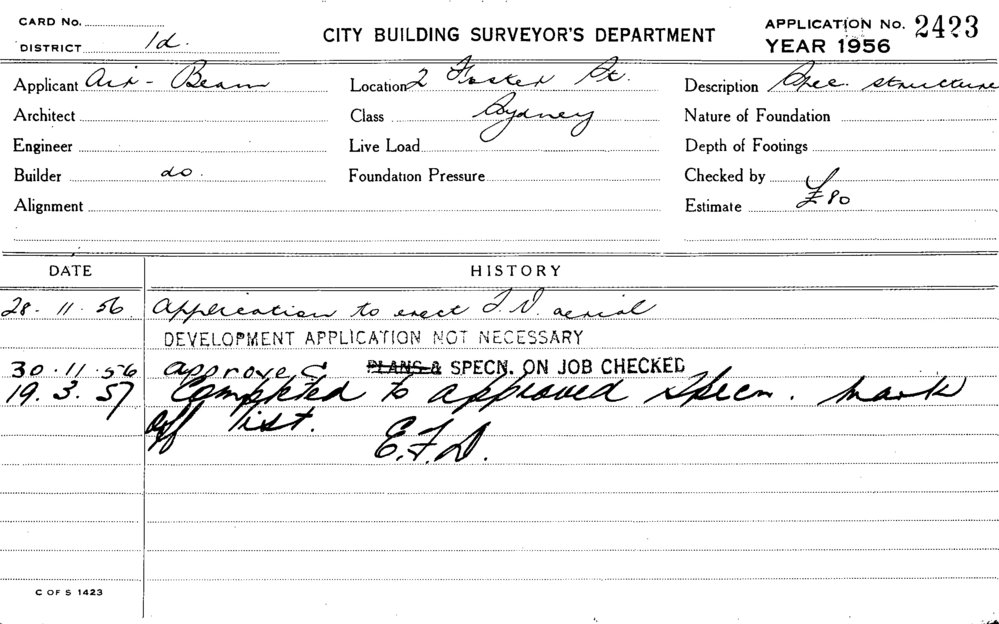 CARD No.
DISTRICT 1d.
CITY BUILDING SURVEYOR'S DEPARTMENT
APPLICATION No. 2423
YEAR 1956
Applicant Air-Beam
Location 2 Foster St.
Description Spec. structure
Architect
Class Sydney
Nature of Foundation
Engineer
Live Load
Depth of Footings
Builder do.
Foundation Pressure
Checked by
Alignment
Estimate £80
DATE HISTORY
28.11.56 Application to erect T.V. aerial
DEVELOPMENT APPLICATION NOT NECESSARY
30.11.56 approved PLANS & SPECN. ON JOB CHECKED
19.3.57 Completed to approved specn. mark
off list.
E.F.D.
C OF S 1423